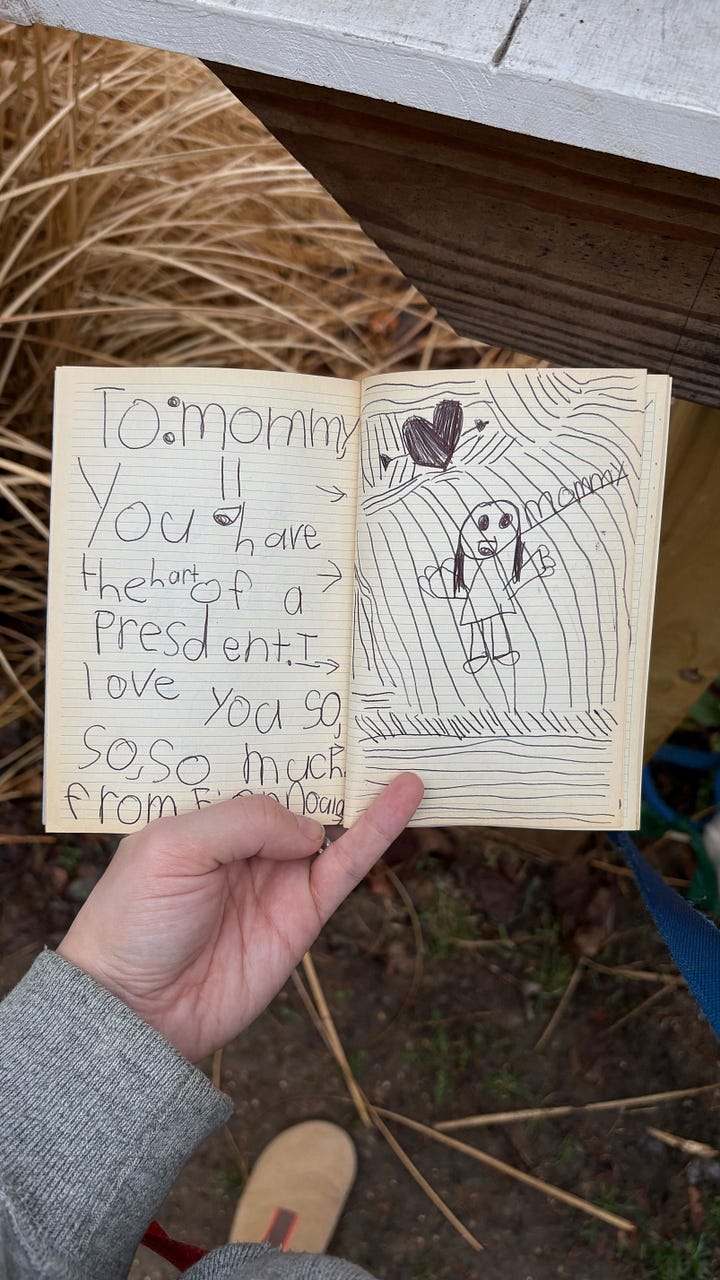 To: mommy
You !! have
the hart of a
Presdent. I
love you so,
So, so much.
from
mommy